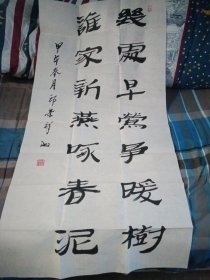 幾處早鶯爭暖樹
誰家新燕啄春泥
甲午春月